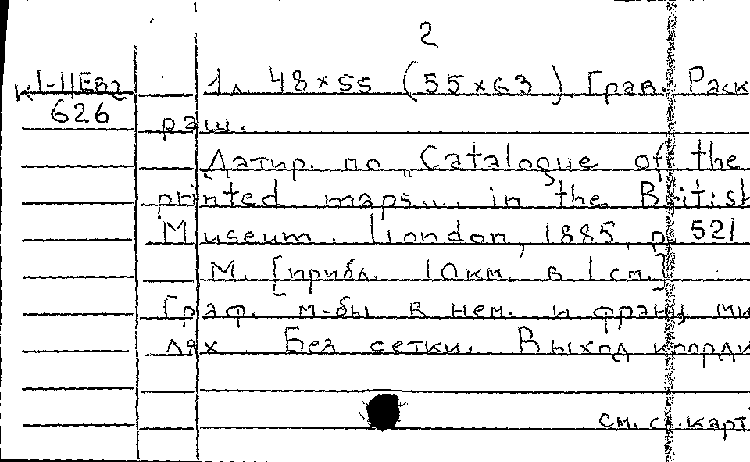 2
К 1-IIЕв2 1л 48×55 (55×63). Грав. Раск
626
раш.
Датир. по „Catalogue of the
printed maps... in the British
Museum. London, 1885, p. 521
М. [прибл. 10км. в 1см.]
Граф. м-бы в нем. и франц ми
лях Без сетки. Выход коорди
см. сл. карт